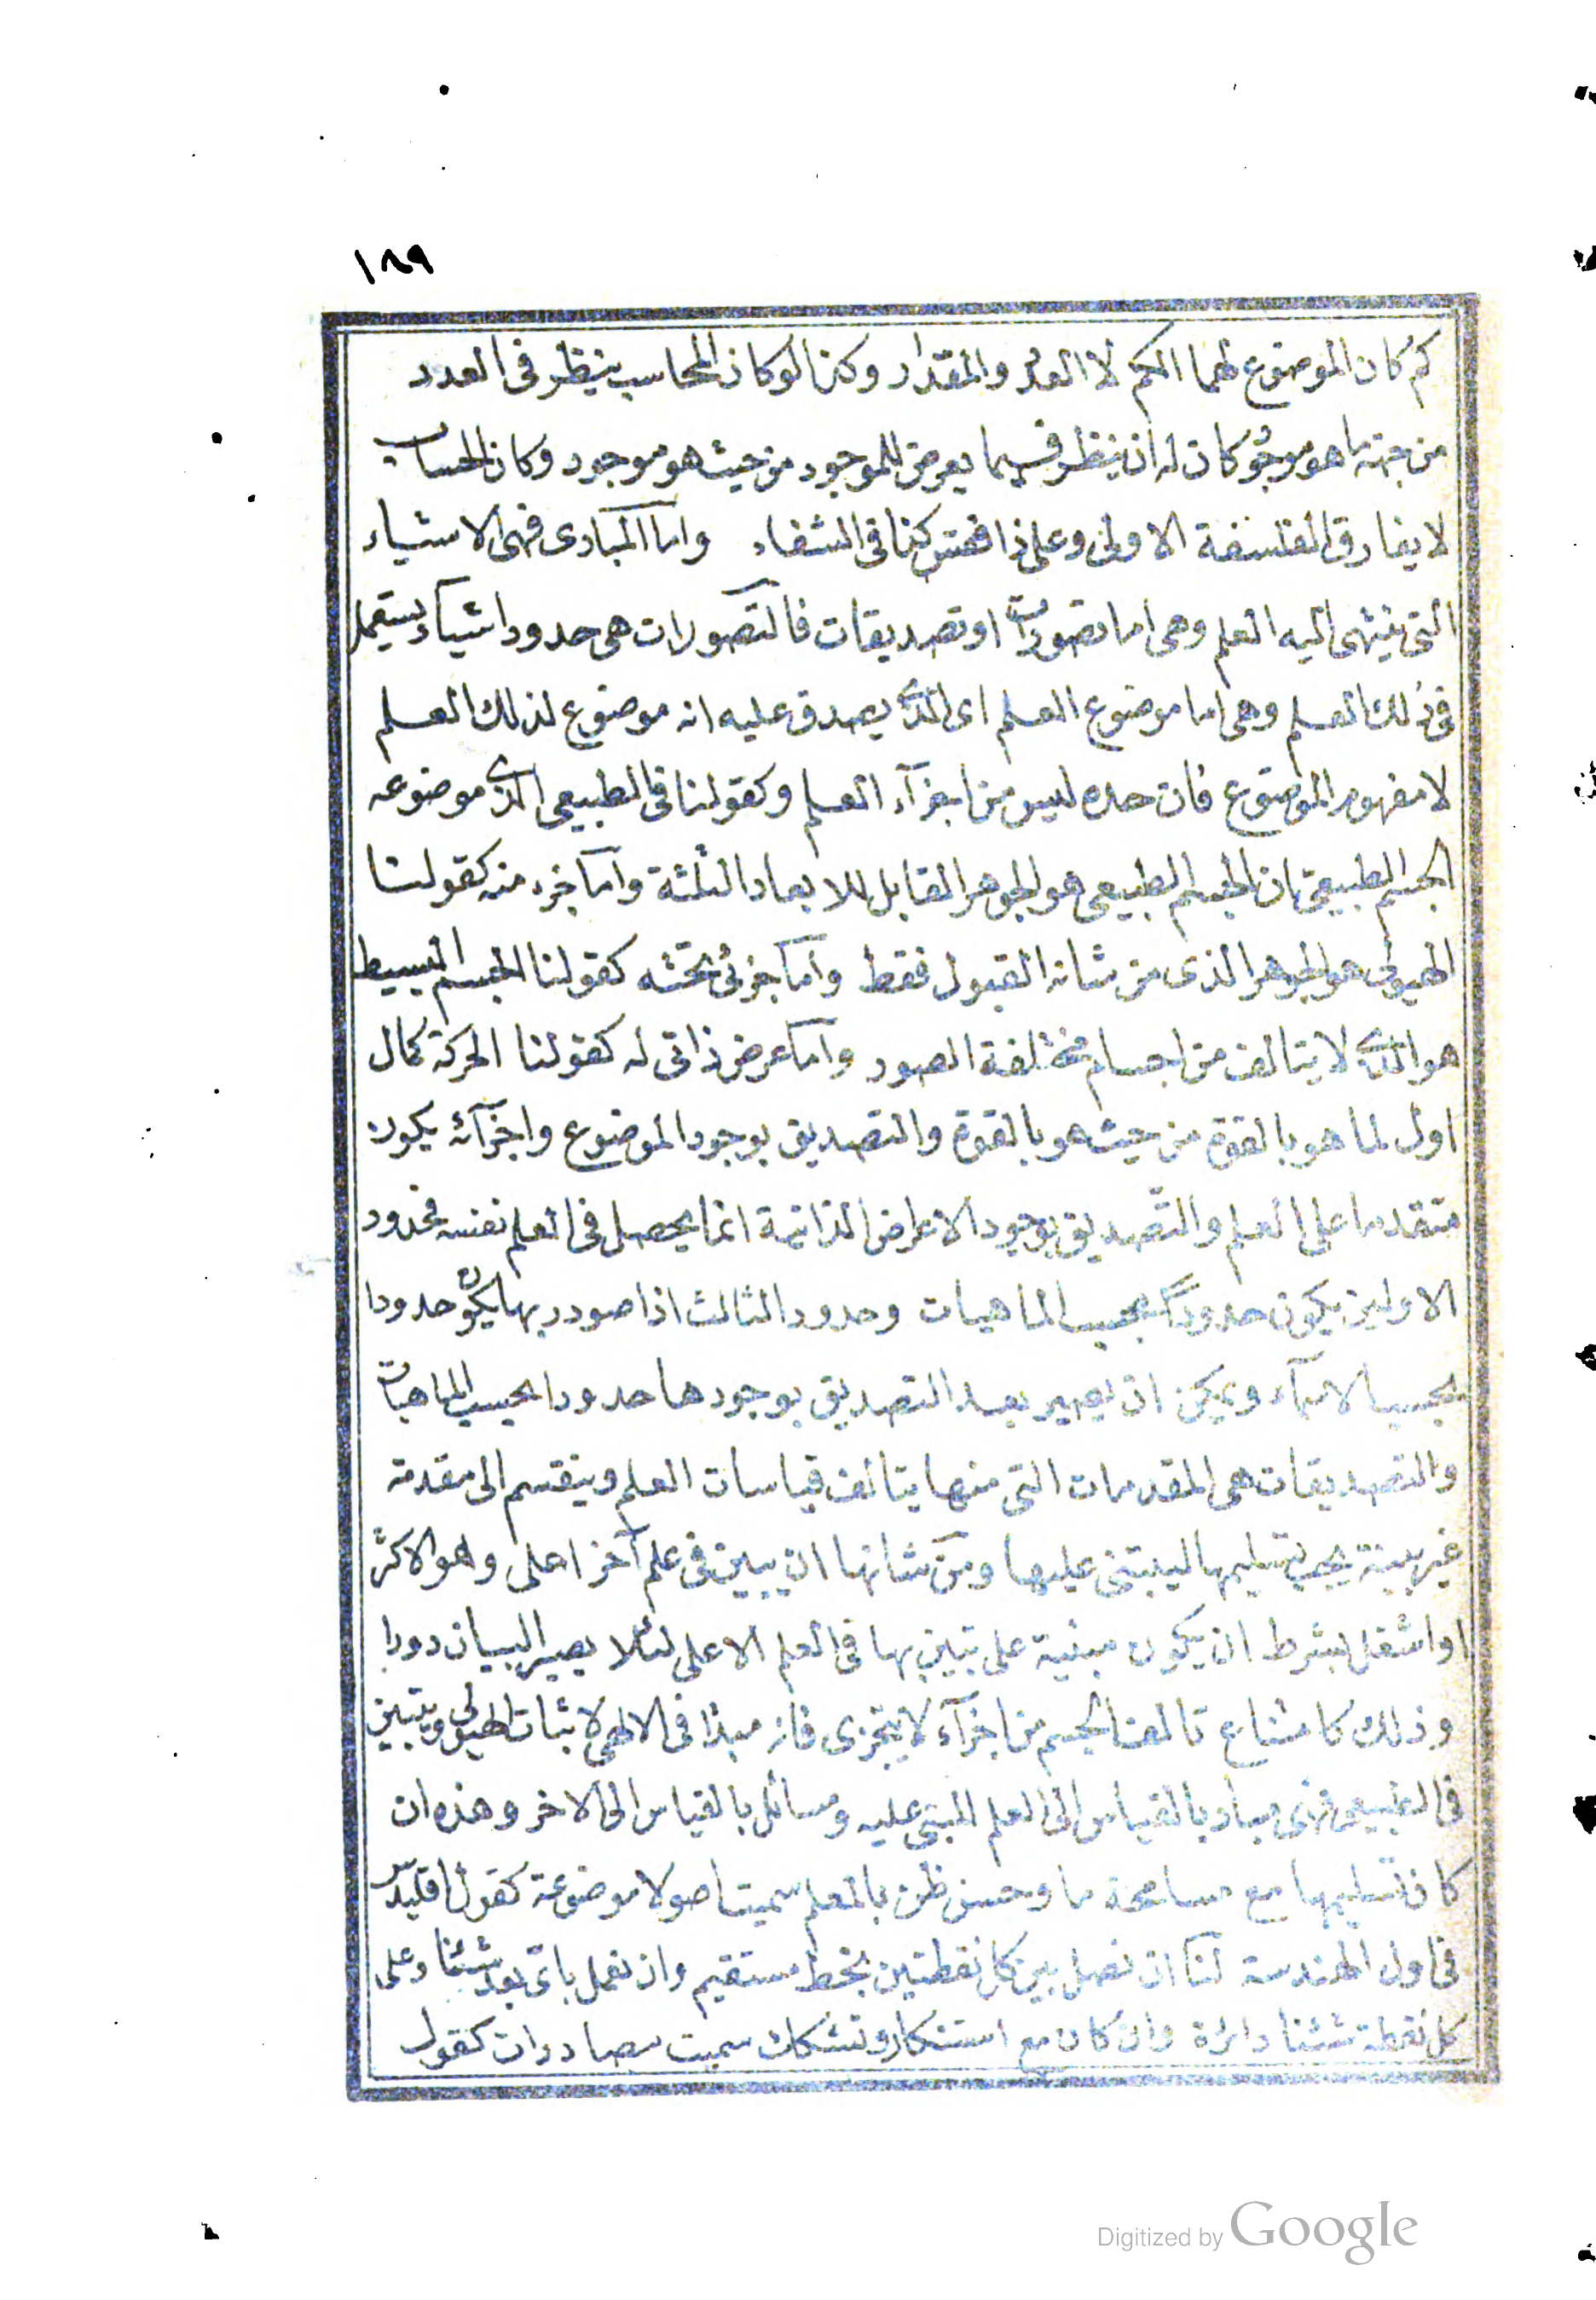 ١٨٩
كم كان الموضوع لهما الكم لا العدد والمقدار وكذا لو كان المحاسب ينظر فى العدد
من جهة ما هو موجود كان له ان ينظر فيما يعرض للموجود من حيث هو موجود وكان الحساب
لا يفارق الفلسفة الاولى وعلى ذا فقس كذا فى الشفاء واما المبادى فهى الاشياء
التى ينتهى اليه العلم وهى اما تصورات او تصديقات فالتصورات هى حدود اشياء يستعمل
فى ذلك العلم وهى اما موضوع العلم اى الذى يصدق عليه انه موضوع لذلك العلم
لا مفهوم الموضوع فان حده ليس من اجزآء العلم وكقولنا فى الطبيعى الذى موضوعه
الجسم الطبيعى ان الجسم الطبيعى هو الجوهر القابل للابعاد الثلثة واما جزء منه كقولنا
الهيولى هو الجوهر الذى من شانه القبول فقط واما جزئى تحته كقولنا الجسم البسيط
هو الذى لا يتالف من اجسام مختلفة الصور واما عرض ذاتى له كقولنا الحركة كمال
اول لما هو بالقوة من حيث هو بالقوة والتصديق بوجود الموضوع واجزآئه يكون
متقدما على العلم والتصديق بوجود الاعراض الذاتية انما يحصل فى العلم نفسه فحدود
الاولين يكون حدودا بحسب الماهيات وحدود الثالث اذا صودر بها يكون حدودا
بحسب الاسمآء ويمكن ان يصير بعد التصديق بوجودها حدودا بحسب الماهيات
والتصديقات هى المقدمات التى منها يتالف قياسات العلم وينقسم الى مقدمة
غير بينة يجب تسليمها ليبتنى عليها ومن شانها ان يبين فى علم آخر اعلى وهو الاكثر
او اسفل بشرط ان يكون مبنية على بها فى العلم الاعلى لئلا يصير البيان دورا
وذلك كامتناع تالف الجسم من اجزآء لا يتجزى فانه مبدا فى الالهى لاثبات الهيولى ويتبين
فى الطبيعى فهى مباد بالقياس الى العلم المبتنى عليه ومسائل بالقياس الى الاخر وهذه ان
كان تسليمها مع مسامحة ما وحسن ظن بالمعلم سميت اصولا موضوعة كقول اقليدس
فى اول الهندسة لنا ان نصل بين كل نقطتين بخط مستقيم وان نعمل باى بعد شئنا وعلى
كل نقطة شئنا دائرة وان كان مع استنكار وتشكك سميت مصادرات كقول
Digitized by Google